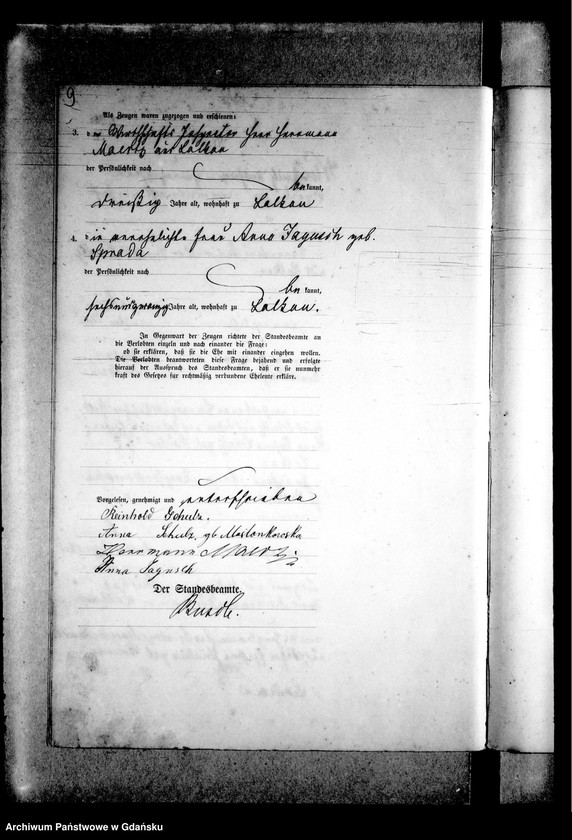 9
Als Zeugen waren zugezogen und erschienen:
3. der Wirthschafts Inspector Herr Herrmann
Maertz aus Lalkau
der Persönlichkeit nach
be kannt,
dreißig Jahre alt, wohnhaft zu Lalkau
4. die verehelichte Frau Anna Jagusch geb.
der Persönlichkeit nach
be kannt,
sechsundzwanzig Jahre alt, wohnhaft zu Lalkau.
In Gegenwart der Zeugen richtete der Standesbeamte an
die Verlobten einzeln und nach einander die Frage:
ob sie erklären, daß sie die Ehe mit einander eingehen wollen.
Die Verlobten beantworteten diese Frage bejahend und erfolgte
hierauf der Ausspruch des Standesbeamten, daß er sie nunmehr
kraft des Gesetzes für rechtmäßig verbundene Eheleute erkläre.
Vorgelesen, genehmigt und unterschrieben
Reinhold Schulz.
Anna Schulz, gb Maslonkowska
Herrmann Maertz.
Anna Jagusch
Der Standesbeamte.
Archiwum Państwowe w Gdańsku